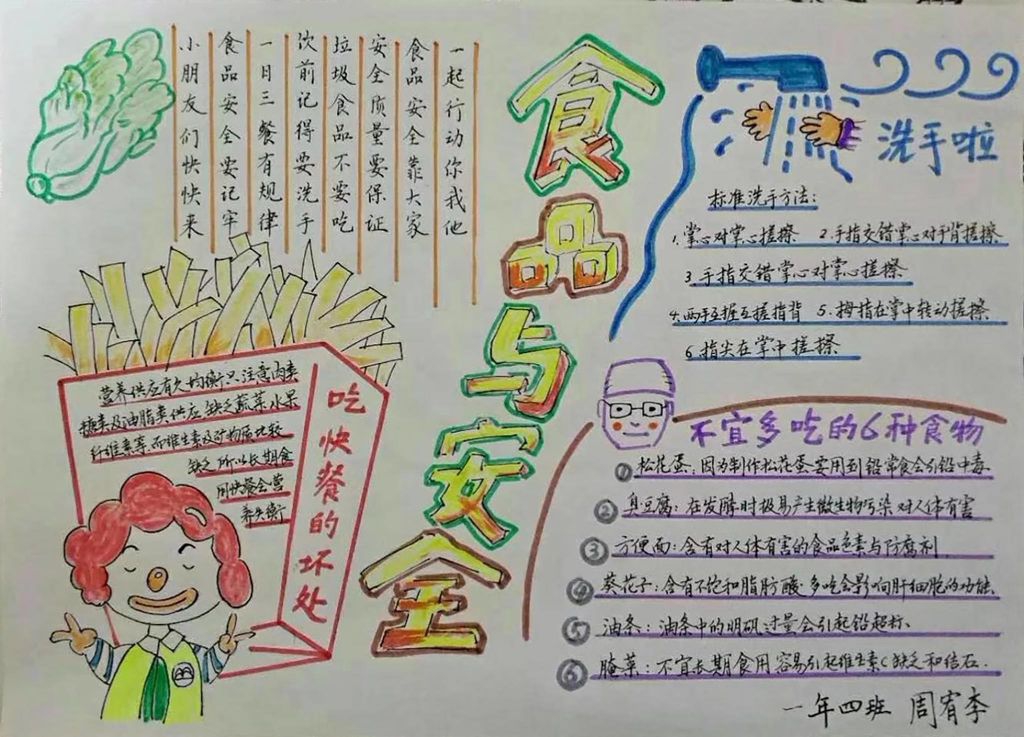 食品与安全
小朋友们快快来
食品安全要记牢
一日三餐有规律
次前记得要洗手
垃圾食品不要吃
安全质量要保证
食品安全靠大家
一起行动你我他
洗手啦
标准洗手方法:
1.掌心对掌心搓擦 2.手指交错掌心对手背搓擦
3.手指交错掌心对掌心搓擦
4.两手互握互搓指背 5.拇指在掌中转动搓擦
6.指尖在掌中搓擦
吃快餐的坏处
营养供应有欠均衡只注意肉类
糖类及油脂类供应缺乏蔬菜水果
纤维素等.而维生素及矿物质比较
缺乏 所以长期食
用快餐会营
养失衡
不宜多吃的6种食物
①松花蛋:因为制作松花蛋要用到铅常食会引铅中毒
②臭豆腐:在发酵时极易产生微生物污染对人体有害
③方便面:含有对人体有害的食品色素与防腐剂
④葵花子:含有不饱和脂肪酸.多吃会影响肝细胞的功能.
⑤油条:油条中的明矾过量会引起铅超标、
⑥腌菜:不宜长期食用容易引起维生素C缺乏和结石.
一年四班 周宥李